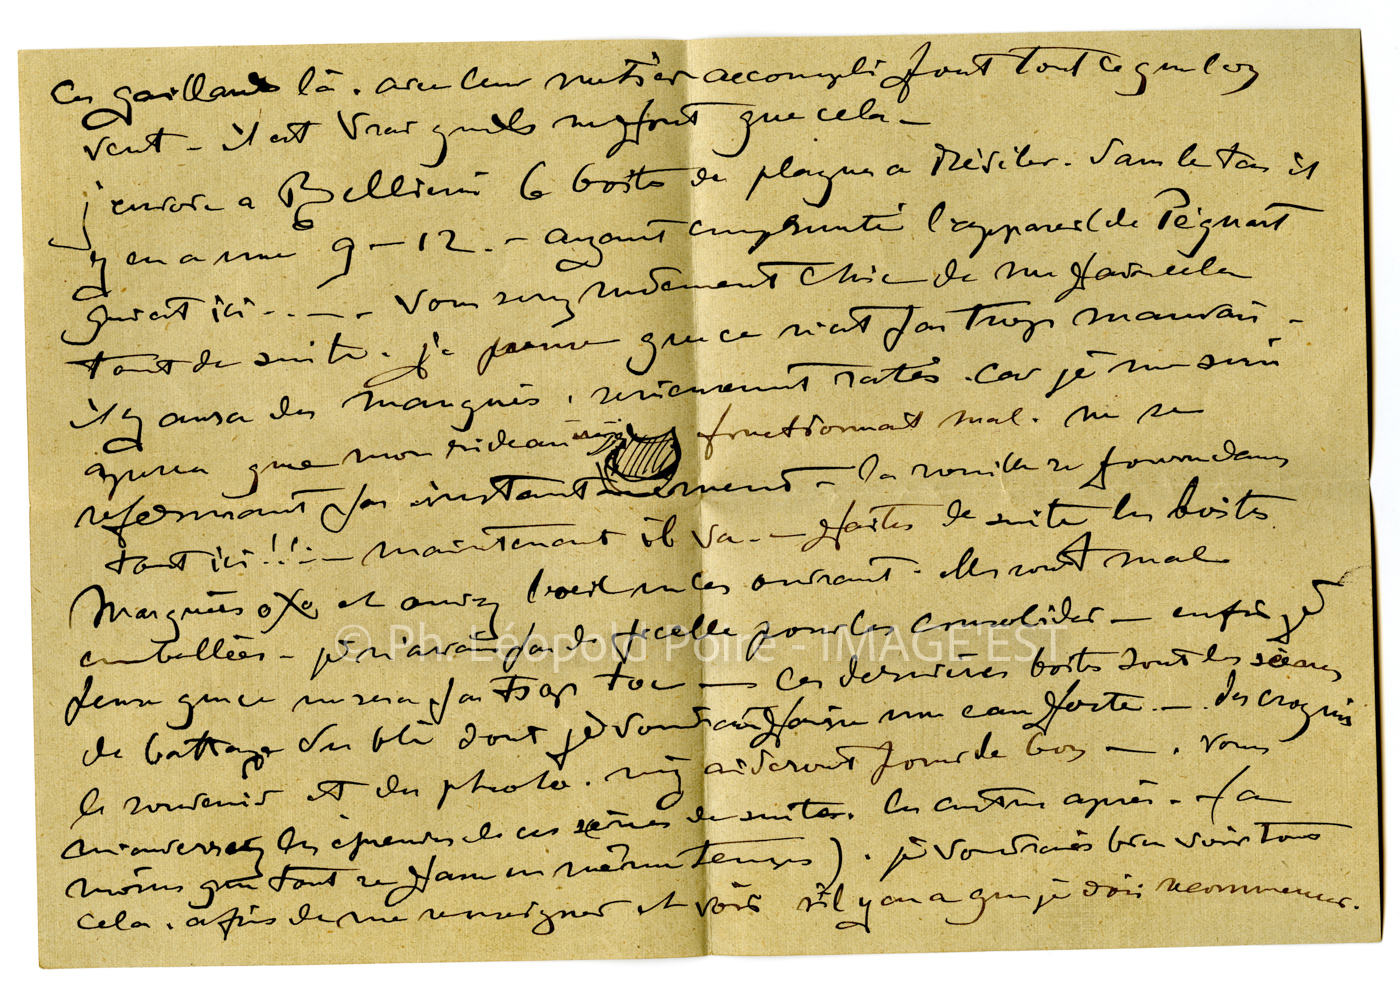 Ces gaillards là. avec leur métier accompli font tout ce qu'on leur
veut - il est vrai qu'ils ne font que cela -
j'envoie a Bellieni 6 boites de plaques a déviler. dans le tas il
y en a une 9-12. - ayant emprunté l'appareil de Pégnart
qui est ici - . . - . Vous serez rudement chic de me faire cela
tout de suite. je pense que ce n'est pas trop mauvais -
il y aura des marqués, sérieusement ratés. car je me suis
aperçu que mon rideau fonctionnait mal. ne se
refermant pas instantanément - la rouille se fourre dans
tout ici!!. - maintenant il va. - faites de suite les boites
Marquées oXo et ayez l'oeil en les ouvrant. elles sont mal
emballées - je n'avais pas de ficelle pour les consolider - enfin je
pense que ce ne sera pas trop toc - ces dernières boites sont les scènes
de battage du blé dont je voudrais faire une eau forte. - des croquis
le souvenir et des photos. m'y aideront pour de bon - . Vous
m'enverrez les épreuves de ces scènes de suite. les autres après. - (a
moins que tout se fasse en même temps). je voudrais bien voir tout
cela. afin de me renseigner et voir s'il y en a que je dois recommencer.
© Ph. Léopold Poiré - IMAGE'EST